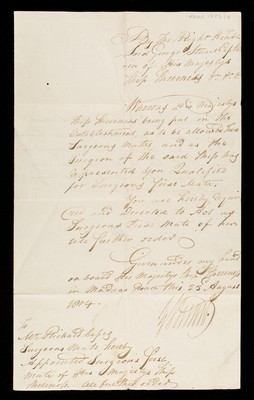 By the Right Honble
Lord George Stuart
of His Majestys
Ship
Whereas His Majestys
Ship being put in the
Establishment, as to be allowed two
Surgeons Mates, and as the
Surgeon of the said Ship has
represented you Qualified
for Surgeons First Mate.
You are hereby Requi
red and Directed to Act as
Surgeons First Mate of her
until further orders
Given under my hand
on board His Majestys Ship
in Madras Roads this 25 August
1804
To
Mr Richard
Surgeons Mate hereby
Appointed Surgeons First
Mate of His Majestys Ship
until further orders